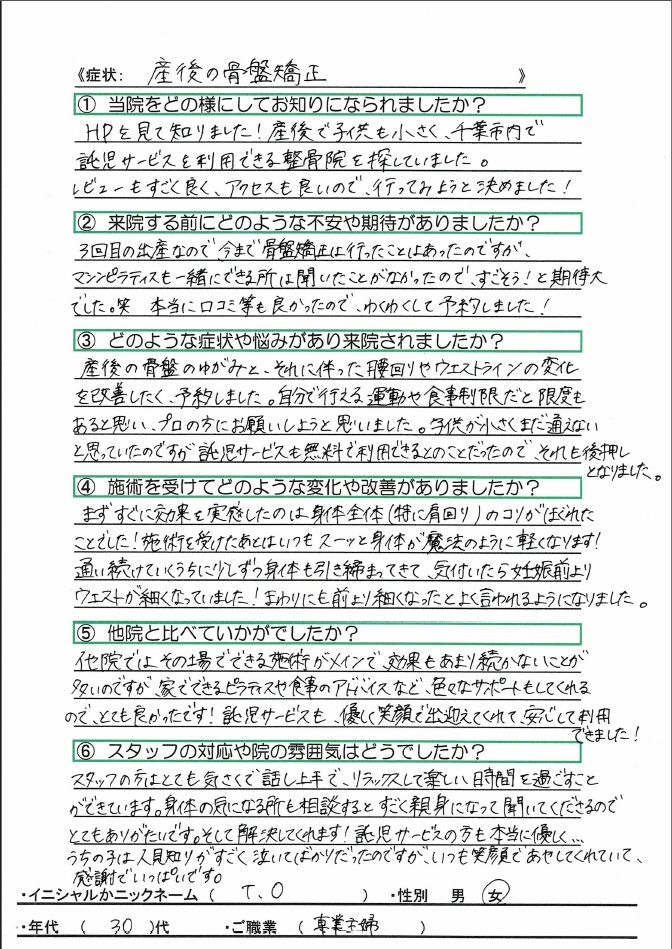 《症状: 産後の骨盤矯正 》
① 当院をどの様にしてお知りになられましたか?
HPを見て知りました!産後で子供も小さく、千葉市内で
託児サービスを利用できる整骨院を探していました。
レビューもすごく良く、アクセスも良いので、行ってみようと決めました!
② 来院する前にどのような不安や期待がありましたか?
3回目の出産なので今まで骨盤矯正は行ったことはあったのですが、
マシンピラティスも一緒にできる所は聞いたことがなかったので、すごそう!と期待大
でした。笑 本当に口コミ等も良かったので、わくわくして予約しました!
③ どのような症状や悩みがあり来院されましたか?
産後の骨盤のゆがみと、それに伴った腰回りやウエストラインの変化
を改善したく、予約しました。自分で行える運動や食事制限だと限度も
あると思い、プロの方にお願いしようと思いました。子供が小さくまだ通えない
と思っていたのですが託児サービスも無料で利用できるとのことだったので、それも後押し
となりました。
④ 施術を受けてどのような変化や改善がありましたか?
まずすぐに効果を実感したのは身体全体(特に肩回り)のコリがほぐれた
ことでした!施術を受けたあとはいつもスーッと身体が魔法のように軽くなります!
通い続けていくうちに少しずつ身体も引き締まってきて、気付いたら妊娠前より
ウエストが細くなっていました!まわりにも前より細くなったとよく言われるようになりました。
⑤ 他院と比べていかがでしたか?
他院ではその場でできる施術がメインで、効果もあまり続かないことが
多いのですが、家でできるピラティスや食事のアドバイスなど、色々なサポートもしてくれる
ので、とても良かったです!託児サービスも、優しく笑顔で出迎えてくれて、安心して利用
できました!
⑥ スタッフの対応や院の雰囲気はどうでしたか?
スタッフの方はとても気さくで話し上手で、リラックスして楽しい時間を過ごすこと
ができています。身体の気になる所も相談するとすごく親身になって聞いてくださるので
とてもありがたいです。そして解決してくれます!託児サービスの方も本当に優しく…
うちの子は人見知りがすごく泣いてばかりだったのですが、いつも笑顔であやしてくれていて、
感謝でいっぱいです。
・イニシャルかニックネーム ( T.O ) ・性別 男 女
・年代 ( 30 )代 ・ご職業 ( 専業主婦 )